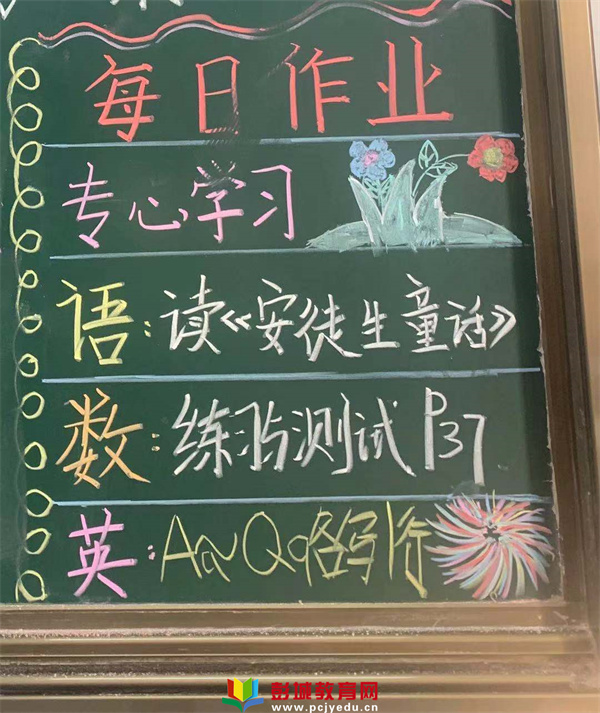 每日作业
专心学习
语：读《安徒生童话》
数：练习与测试 P37
英：Aa~Qq各写1行
彭城教育网
www.pcjyedu.cn